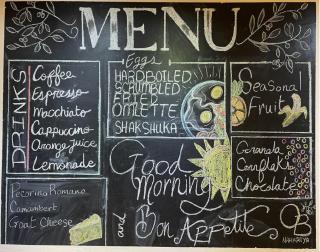 MENU
DRINKS
Coffee
Espresso
Macchiato
Cappuccino
Orange juice
Lemonade
Eggs
HARDBOILED
SCRUMBLED
FRIED
OMLETTE
SHAKSHUKA
Seasonal
Fruit
Pecorino Romano
Camembert
Goat Cheese
Granola
Cornflakes
Chocolate
Good
Morning
and Bon Appetite
OB
NAHARIYA